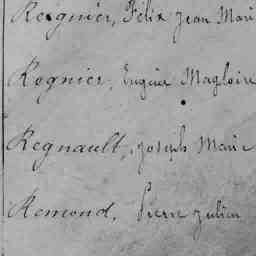 Reignier, Félix Jean Mari
Regnier, Eugène Magloire
Regnault, Joseph Marie
Remond, Pierre Julien